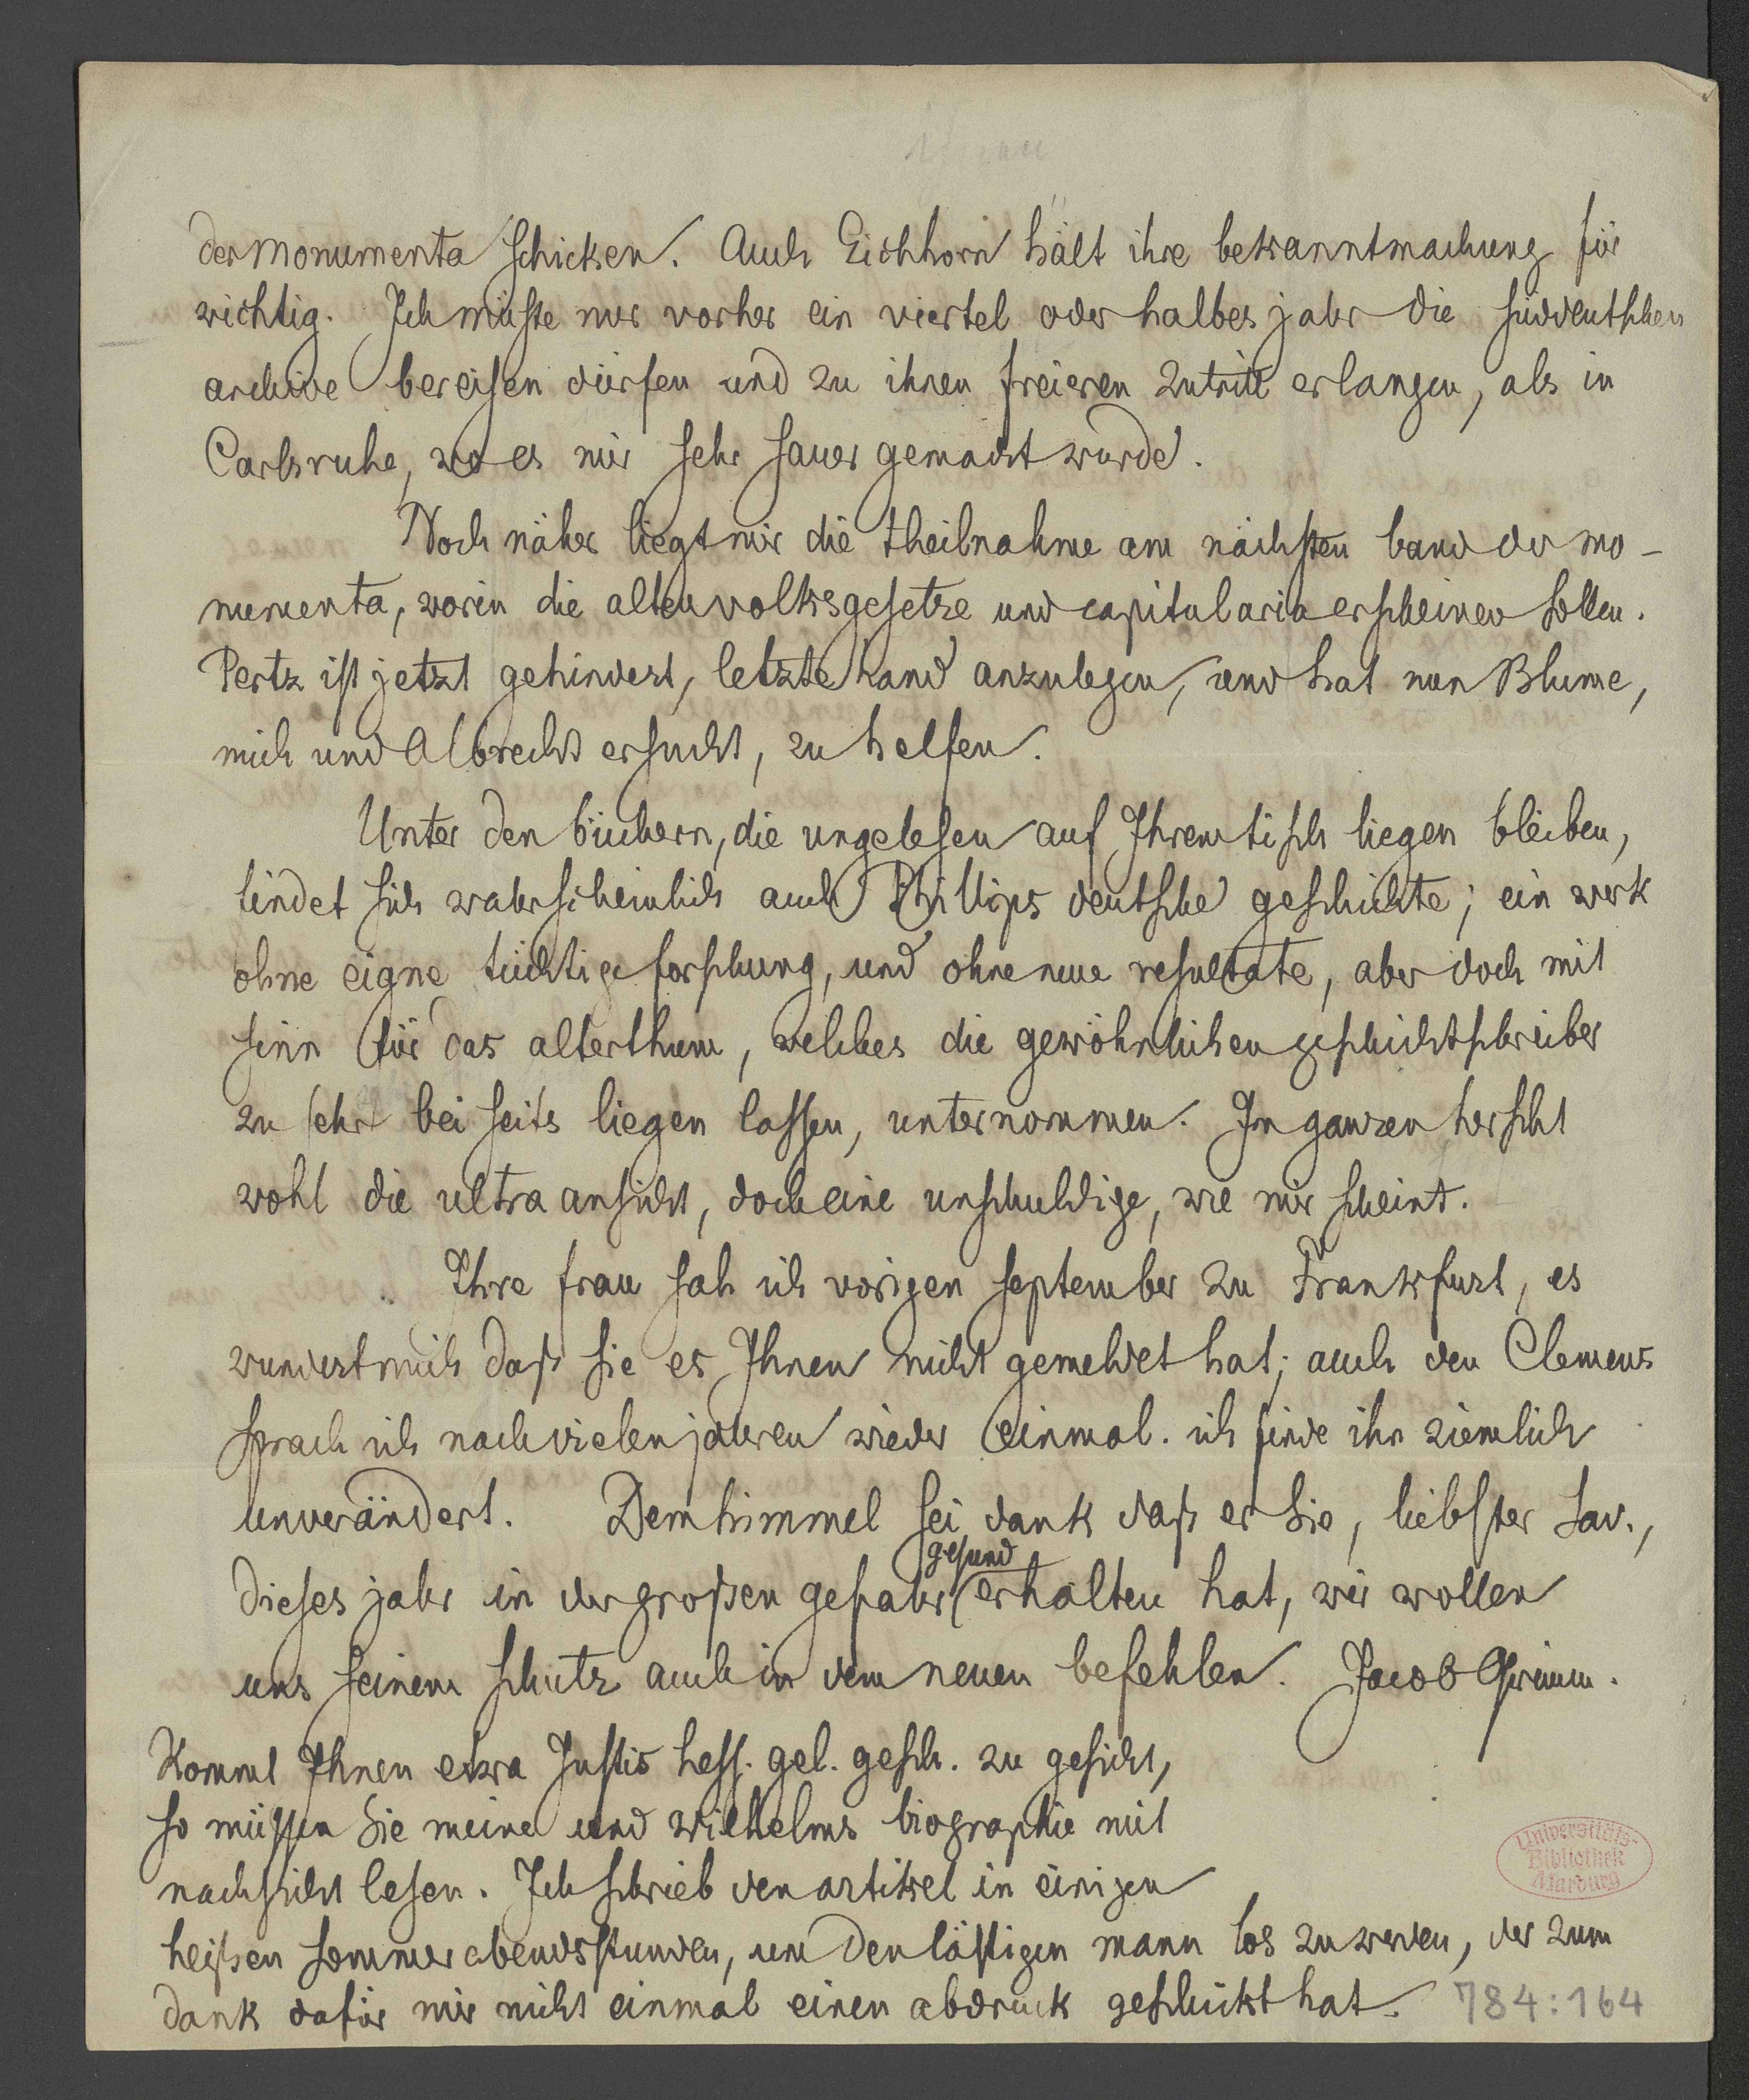 der monumenta schicken. Auch Eichhorn hält ihre bekanntmachung für
wichtig. Ich müste nur vorher ein viertel oder halbes jahr die süddeutschen
archive bereisen dürfen und zu ihnen freieren zutritt erlangen, als in
Carlsruhe, wo es mir sehr sauer gemacht wurde.
Noch näher liegt mir die theilnahme am nächsten band der mo-
numenta, worin die alten volksgesetze und capitularia erscheinen sollen.
Pertz ist jetzt gehindert, letzte hand anzulegen, und hat nun Blume,
mich und Albrecht ersucht, zu helfen.
Unter den büchern, die ungelesen auf Ihrem tisch liegen bleiben,
findet sich wahrscheinlich auch Phillips deutsche geschichte; ein werk
ohne eigne tüchtige forschung, und ohne neue resultate, aber doch mit
sinn für das alterthum, welches die gewöhnlichen geschichtschreiber
zu sehr bei seits liegen lassen, unternommen. Im ganzen herscht
wohl die ultra ansicht, doch eine unschuldige, wie mir scheint.
Ihre frau sah ich vorigen september zu Frankfurt, es
wundert mich daß sie es Ihnen nicht gemeldet hat; auch den Clemens
sprach ich nach vielen jahren wieder einmal. ich finde ihn ziemlich
unverändert. Dem himmel sei dank daß er Sie, liebster Sav.,
dieses jahr in der großen gefahr gesund erhalten hat, wir wollen
uns seinem schutz auch in dem neuen befehlen. Jacob Grimm.
Kommt Ihnen etwa Justis hess. gel. gesch. zu gesicht,
so müssen Sie meine und Wilhelms biographie mit
nachsicht lesen. Ich schrieb den artikel in einigen
heißen sommerabendsstunden, um den lästigen mann los zu werden, der zum
dank dafür mir nicht einmal einen abdruck geschickt hat.
784:164
Universitäts-
Bibliothek
Marburg